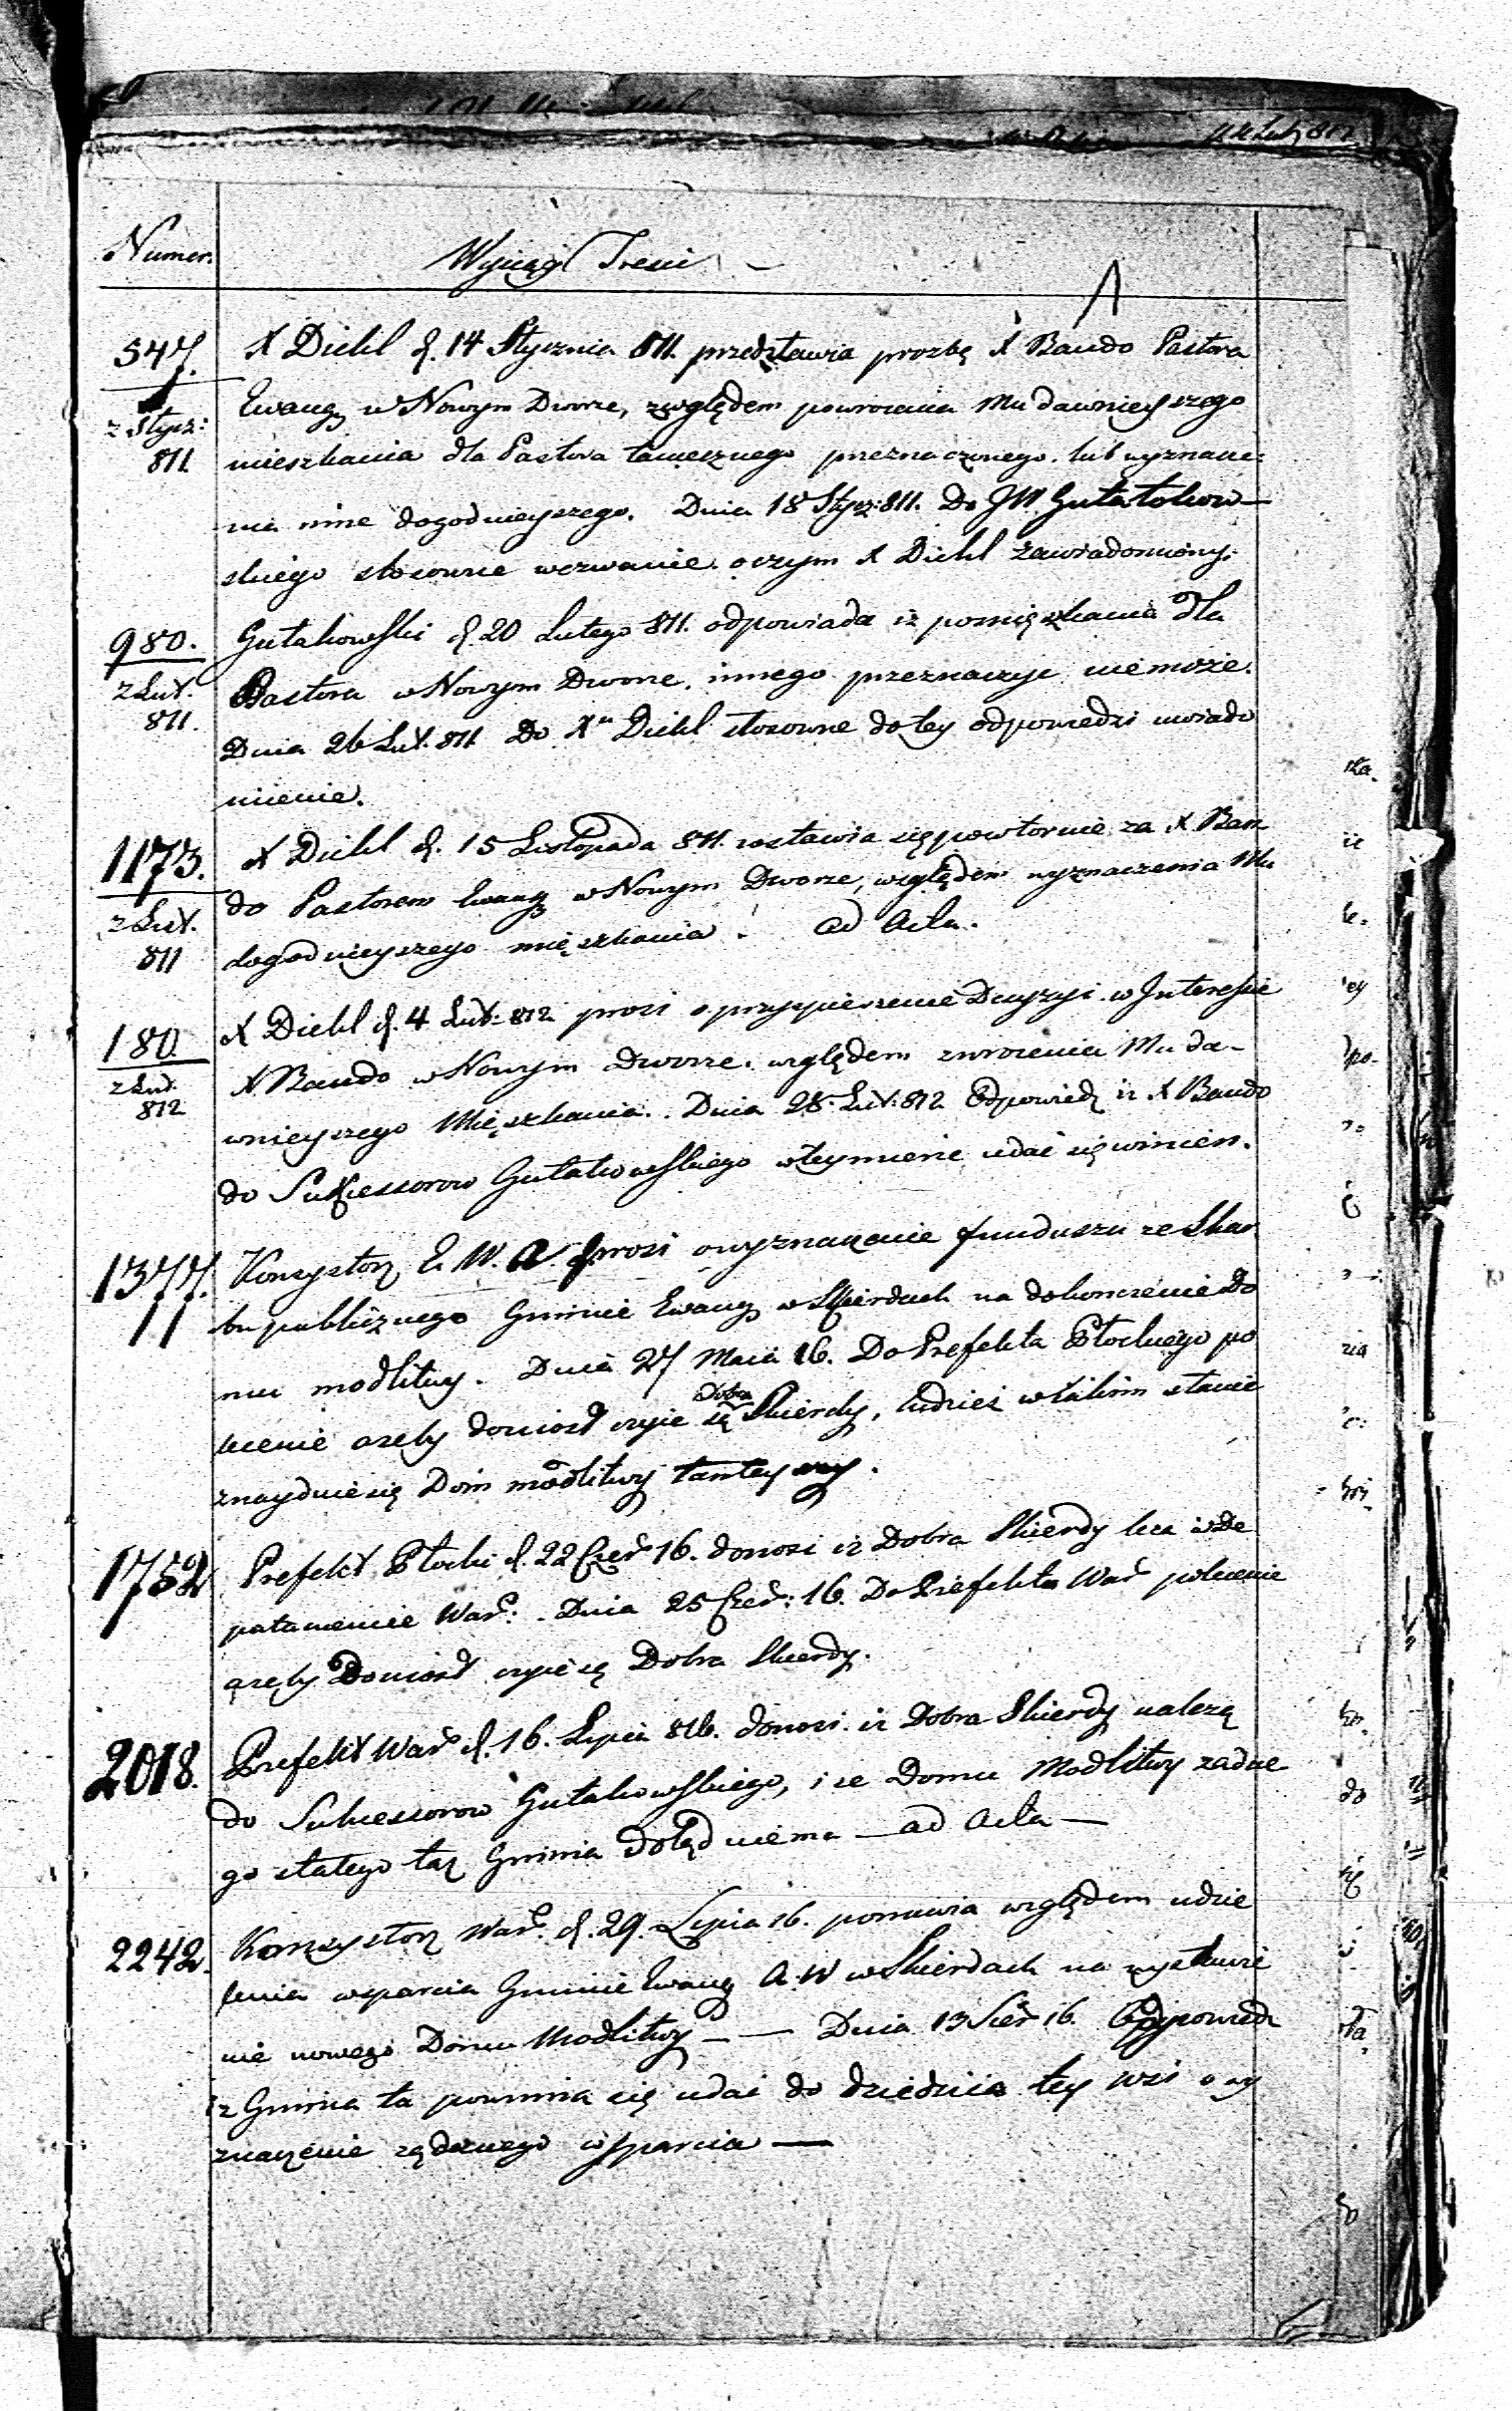 Numer. Wyciąg Treści
547. X Diehl d. 14 Stycznia 811. przedstawia prozbę X Baudo Pastora
z Stycz: Ewang w Nowym Dworze, względem powrocenia Mu dawnieyszego
811. mieszkania dla Pastora tamecznego przeznaczonego. lub wyznacze:
nia inne dogodnieyszego. Dnia 18 Stycz: 811. Do JW Gutakow
skiego stosowne wezwanie. oczym X Diehl zawiadomiony.
980. Gutakowski d. 20 Lutego 811. odpowiada iz pomięszkania dla
z Lut. Pastora w Nowym Dworze. innego przeznaczyc niemoże.
811. Dnia 26 Lut. 811 Do Xa Diehl stosowne do tey odpowiedzi uwiado
mienie.
1173. X Diehl d. 15 Listopada 811. wstawia się powtornie za X. Bau
z List. do Pastorem Ewang w Nowym Dworze, względem wyznaczenia Mu
811 dogodnieyszego mięszkania. ad Acta.
180. X Diehl d. 4 Lut: 812 prosi o przyspieszenie Decyzyi w Interessie
z Lut. X Baudo w Nowym Dworze. względem zwrocenia Mu da-
812 wnieyszego Mięszkania. Dnia 28. Lut: 812 Odpowiedz iz X Baudo
do Sukcessorow Gutakowskiego w teymierze udać się winien.
1377. Konsystorz E. W. A. prosi o wyznaczenie funduszu ze Skar
bu publicznego Gminie Ewang w Skierdach na dokonczenie Do
mu modlitwy. Dnia 27 Maia 16. Do Prefekta Płockiego po
lecenie azeby doniosł czyie są Dobra Skierdy, tudzież w iakim stanie
znayduie się Dom modlitwy tamteyszy.
1752 Prefekt Płocki d. 22 Czer 16. donosi iż Dobra Skierdy leżą w De
partamencie War: Dnia 25 Czer: 16. Do Prefekta War polecenie
azęby Doniosł czyie są Dobra Skierdy.
2018. Prefekt War d. 16. Lipca 816. donosi iz Dobra Skierdy należą
do Sukcessorow Gutakowskiego, i że Domu Modlitwy żadne
go stałego taż Gmina dotąd niema — ad Acta —
2242. Konsystorz War. d. 29. Lipca 16. ponawia względem udzie
lenia wsparcia Gminie Ewang A. W w Skierdach na wystawie
nie nowego Domu Modlitwy — — Dnia 13 Sier 16. Odpowiedz
iz Gmina ta powinna się udać do dziedzica tey wsi o wy
znaczenie ządanego wsparcia —